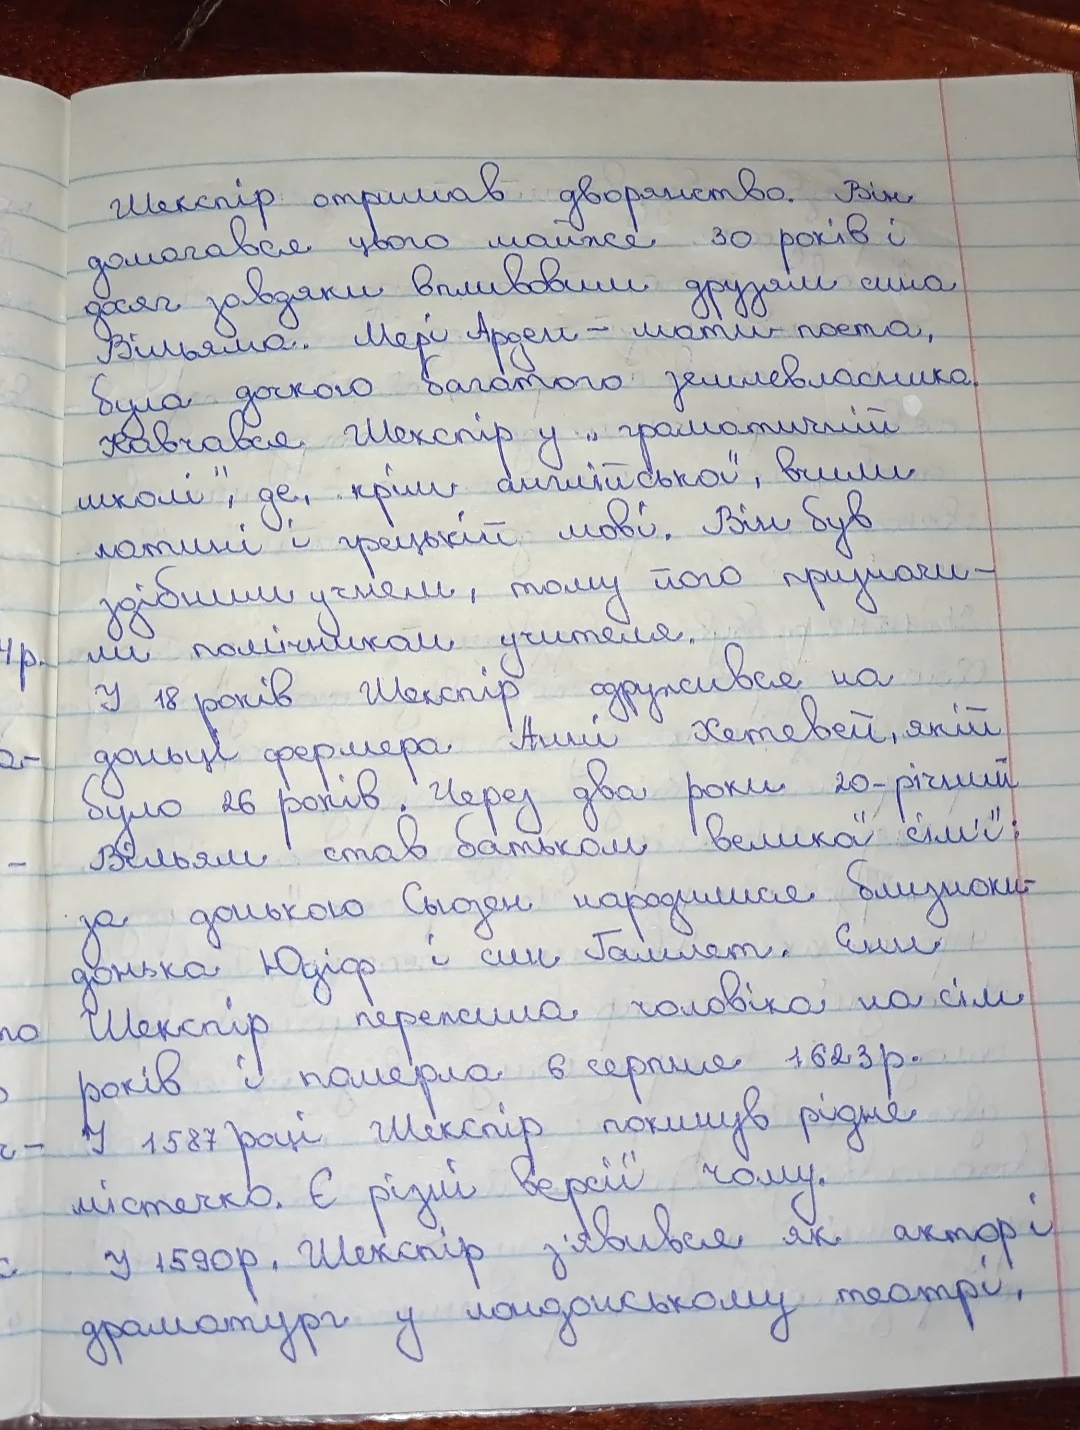 Шекспір отримав дворянство. Він
домагався цього майже 30 років і
досяг завдяки впливовим друзям сина
Вільяма. Мері Арден - мати поета,
була дочкою багатого землевласника.
Навчався Шекспір у „граматичній
школі", де, крім англійської, вчили
латині і грецькій мові. Він був
здібним учнем, тому його призначи-
ли помічником учителя.
У 18 років Шекспір одружився на
доньці фермера Анні Хетевей, якій
було 26 років. Через два роки 20-річний
Вільям став батьком великої сім'ї:
за донькою Сьюзен народилися близнюки-
донька Юдіф і син Гамлет. Енн
Шекспір пережила чоловіка на сім
років і померла 6 серпня 1623р.
У 1587 році Шекспір покинув рідне
містечко. Є різні версії чому.
У 1590р. Шекспір з'явився як актор і
драматург у лондонському театрі,